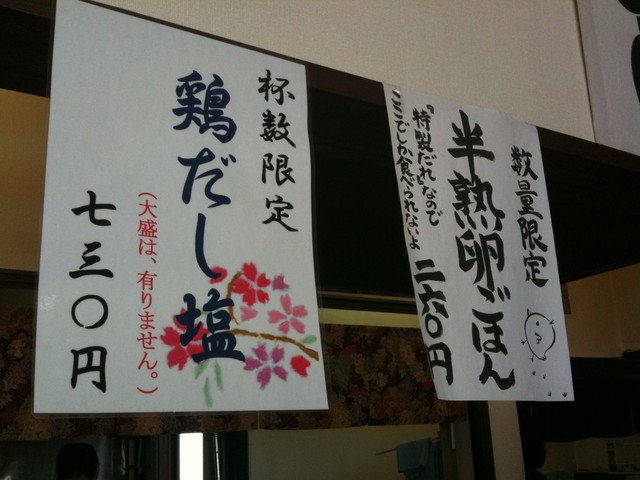 杯数限定
鶏だし塩
(大盛は、有りません。)
七三〇円
数量限定
半熟卵ごはん
『特製だれ』なので
ここでしか食べられないよ
二六〇円